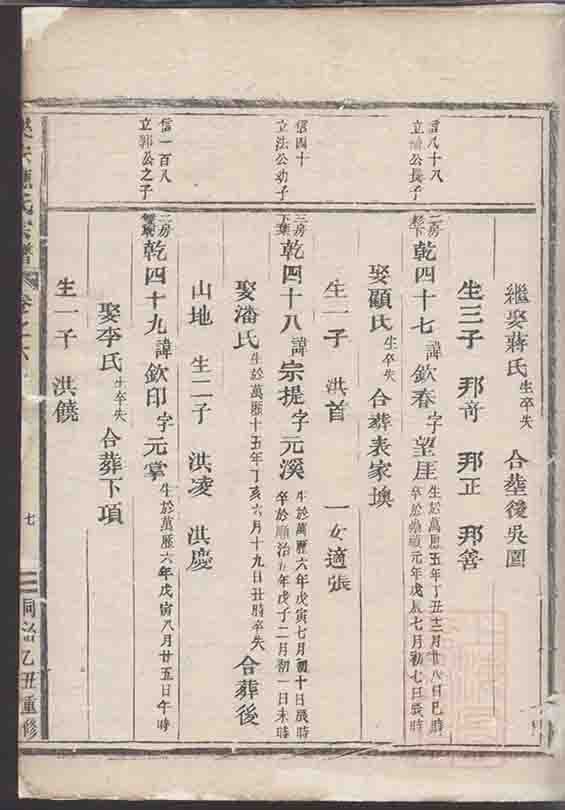 繼娶蔣氏生卒失 合塟後吳園
生三子 邦竒 邦正 邦善
信八十八
立 公長子
二房
乾四十七諱欽春字望厓生於萬厯五年丁丑十二月廿八日巳時
卒於崇禎元年戊辰七月初七日辰時
娶顧氏生卒失 合葬表家墺
生一子 洪首 一女適張
信四十
立法公幼子
三房
下葉
乾四十八諱宗提字元溪生於萬曆六年戊寅七月初十日辰時
卒於順治五年戊子二月初一日未時
娶潘氏生於萬曆十五年丁亥六月十九日丑時卒失 合葬後
山地 生二子 洪凌 洪慶
信一百八
立郭公之子
三房
乾四十九諱欽印字元掌生於萬曆六年戊寅八月廿五日午時
娶李氏生卒失 合葬下項
生一子 洪饒
氏宗譜 卷之六
七
同治乙丑重修